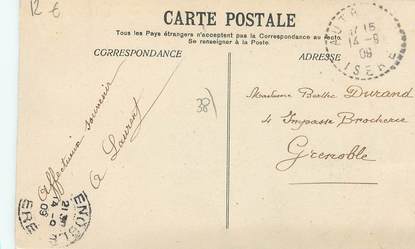 12 €
CARTE POSTALE
Tous les Pays étrangers n'acceptent pas la Correspondance au recto.
Se renseigner à la Poste.
CORRESPONDANCE
ADRESSE
38
Affectueux souvenir
Laurent
Berthe Durand
4 Impasse Brocherie
Grenoble
14-9
09
ISERE
21 30
14-9
09